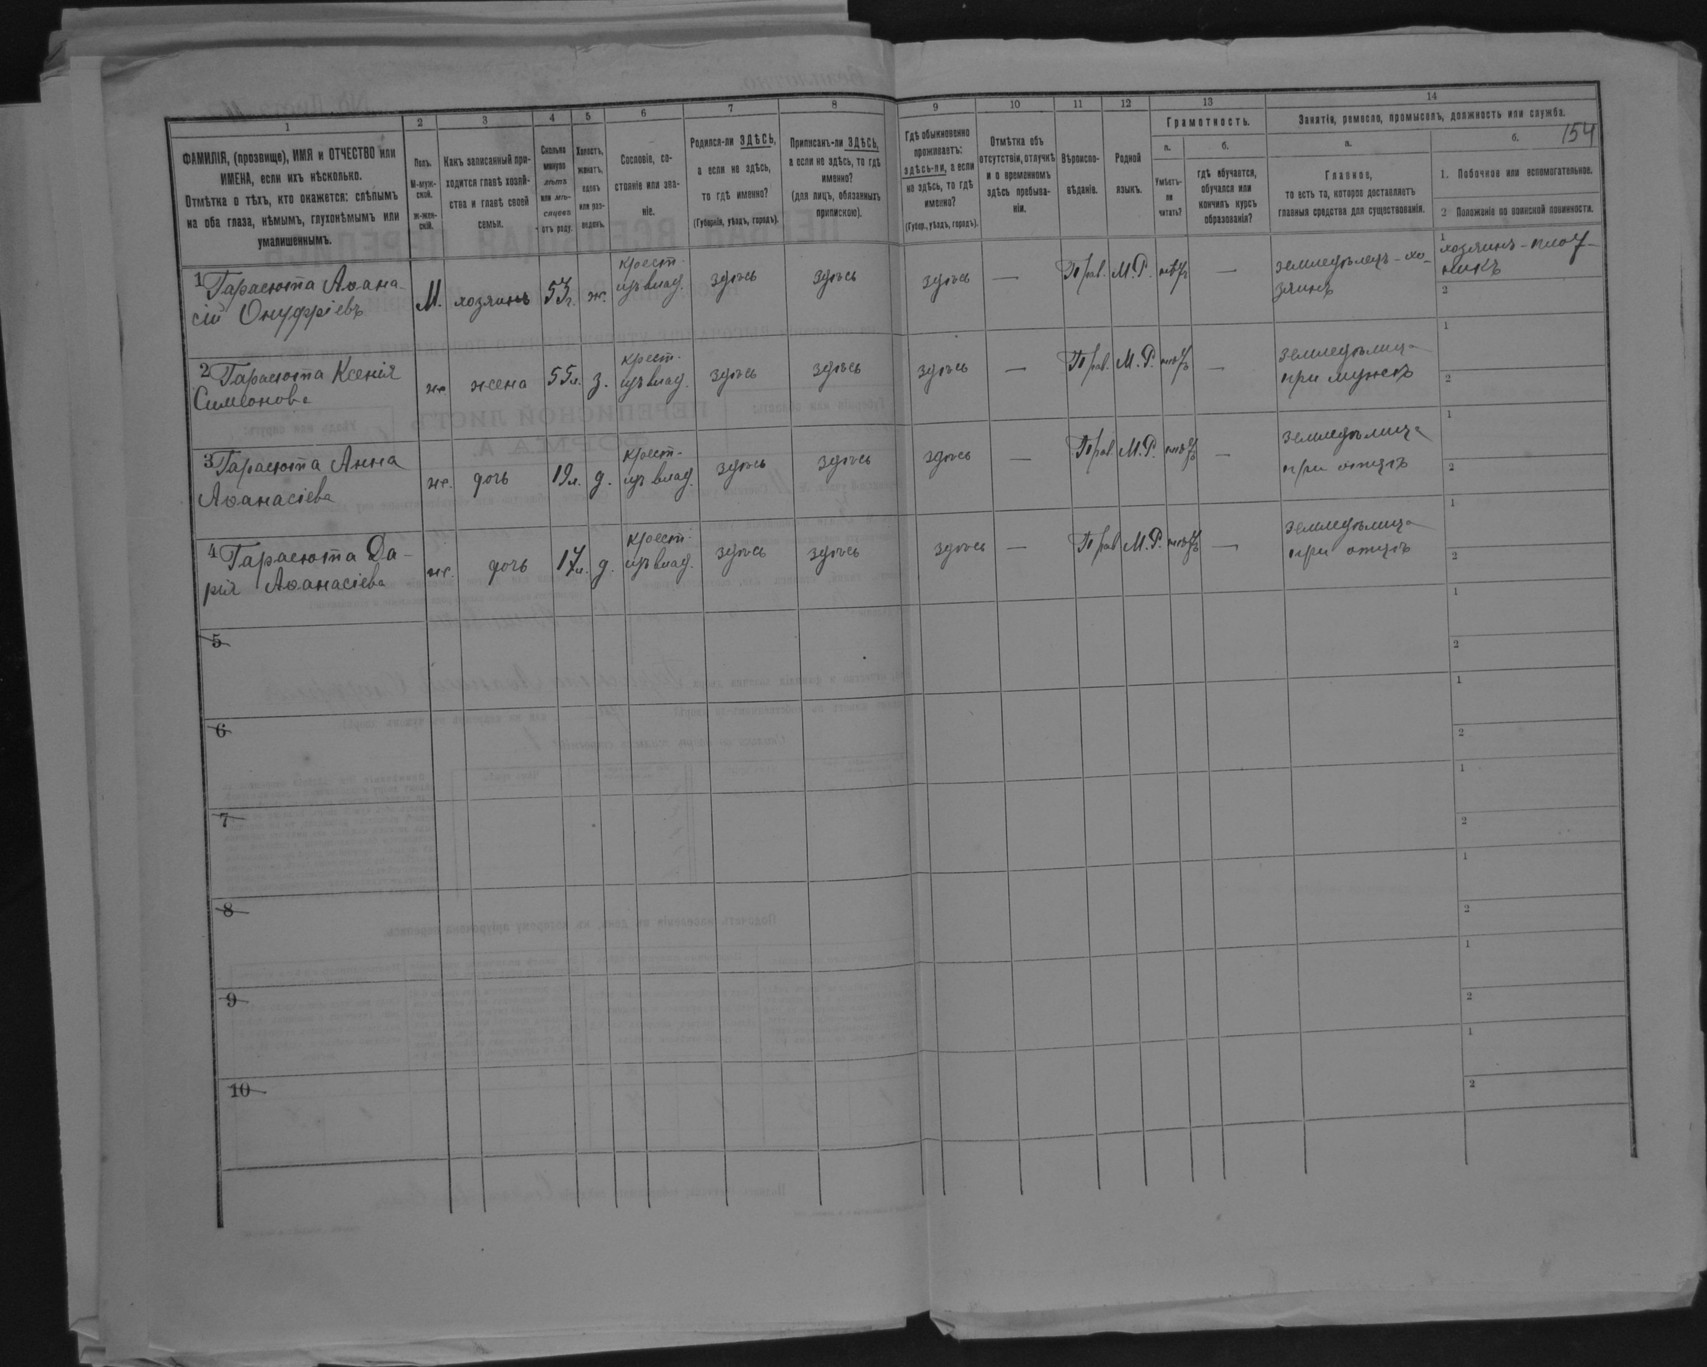 1 2 3 4 5 6 7 8 9 10 11 12 13 14
154
ФАМИЛІЯ, (прозвище), ИМЯ и ОТЧЕСТВО или
ИМЕНА, если ихъ нѣсколько.
Отмѣтка о тѣхъ, кто окажется: слѣпымъ
на оба глаза, нѣмымъ, глухонѣмымъ или
умалишеннымъ.
Полъ.
М-муж-
ской.
Ж-жен-
скій.
Какъ записанный при-
ходится главѣ хозяй-
ства и главѣ своей
семьи.
Сколько
минуло
лѣтъ
или мѣ-
сяцевъ
отъ роду.
Холостъ,
женатъ,
вдовъ
или раз-
веденъ.
Сословіе, со-
стояніе или зва-
ніе.
Родился-ли ЗДѢСЬ,
а если не здѣсь,
то гдѣ именно?
(Губернія, уѣздъ, городъ).
Приписанъ-ли ЗДѢСЬ,
а если не здѣсь, то гдѣ
именно?
(для лицъ, обязанныхъ
припискою).
Гдѣ обыкновенно
проживаетъ:
здѣсь-ли, а если
не здѣсь, то гдѣ
именно?
(Губер., уѣздъ, городъ).
Отмѣтка объ
отсутствіи, отлучкѣ
и о временномъ
здѣсь пребыва-
ніи.
Вѣроиспо-
вѣданіе.
Родной
языкъ.
Грамотность.
а.
Умѣетъ-
ли
читать?
б.
гдѣ обучается,
обучался или
кончилъ курсъ
образованія?
Занятіе, ремесло, промыселъ, должность или служба.
а.
Главное,
то есть то, которое доставляетъ
главныя средства для существованія.
б.
1. Побочное или вспомогательное.
2 Положеніе по воинской повинности.
1 Тарасюта Аѳана-
сій Онуфріевъ
М. хозяинъ 53г. ж. крест. изъ влад. здѣсь здѣсь здѣсь — Прав. М.Р. нѣтъ — земледѣлецъ-хо-
зяинъ
1 хозяинъ-плот-
никъ
2
2 Тарасюта Ксенія
Симеонова
ж жена 55л. з. крест. изъ влад. здѣсь здѣсь здѣсь — Прав. М.Р. нѣтъ — земледѣлица
при мужѣ
1
2
3 Тарасюта Анна
Аѳанасіева
ж. дочь 19л. д. крест. изъ влад. здѣсь здѣсь здѣсь — Прав. М.Р. нѣтъ — земледѣлица
при отцѣ
1
2
4 Тарасюта Да-
рія Аѳанасіева
ж. дочь 17л. д. крест. изъ влад. здѣсь здѣсь здѣсь — Прав. М.Р. нѣтъ — земледѣлица
при отцѣ
1
2
5
1
2
6
1
2
7
1
2
8
1
2
9
1
2
10
1
2